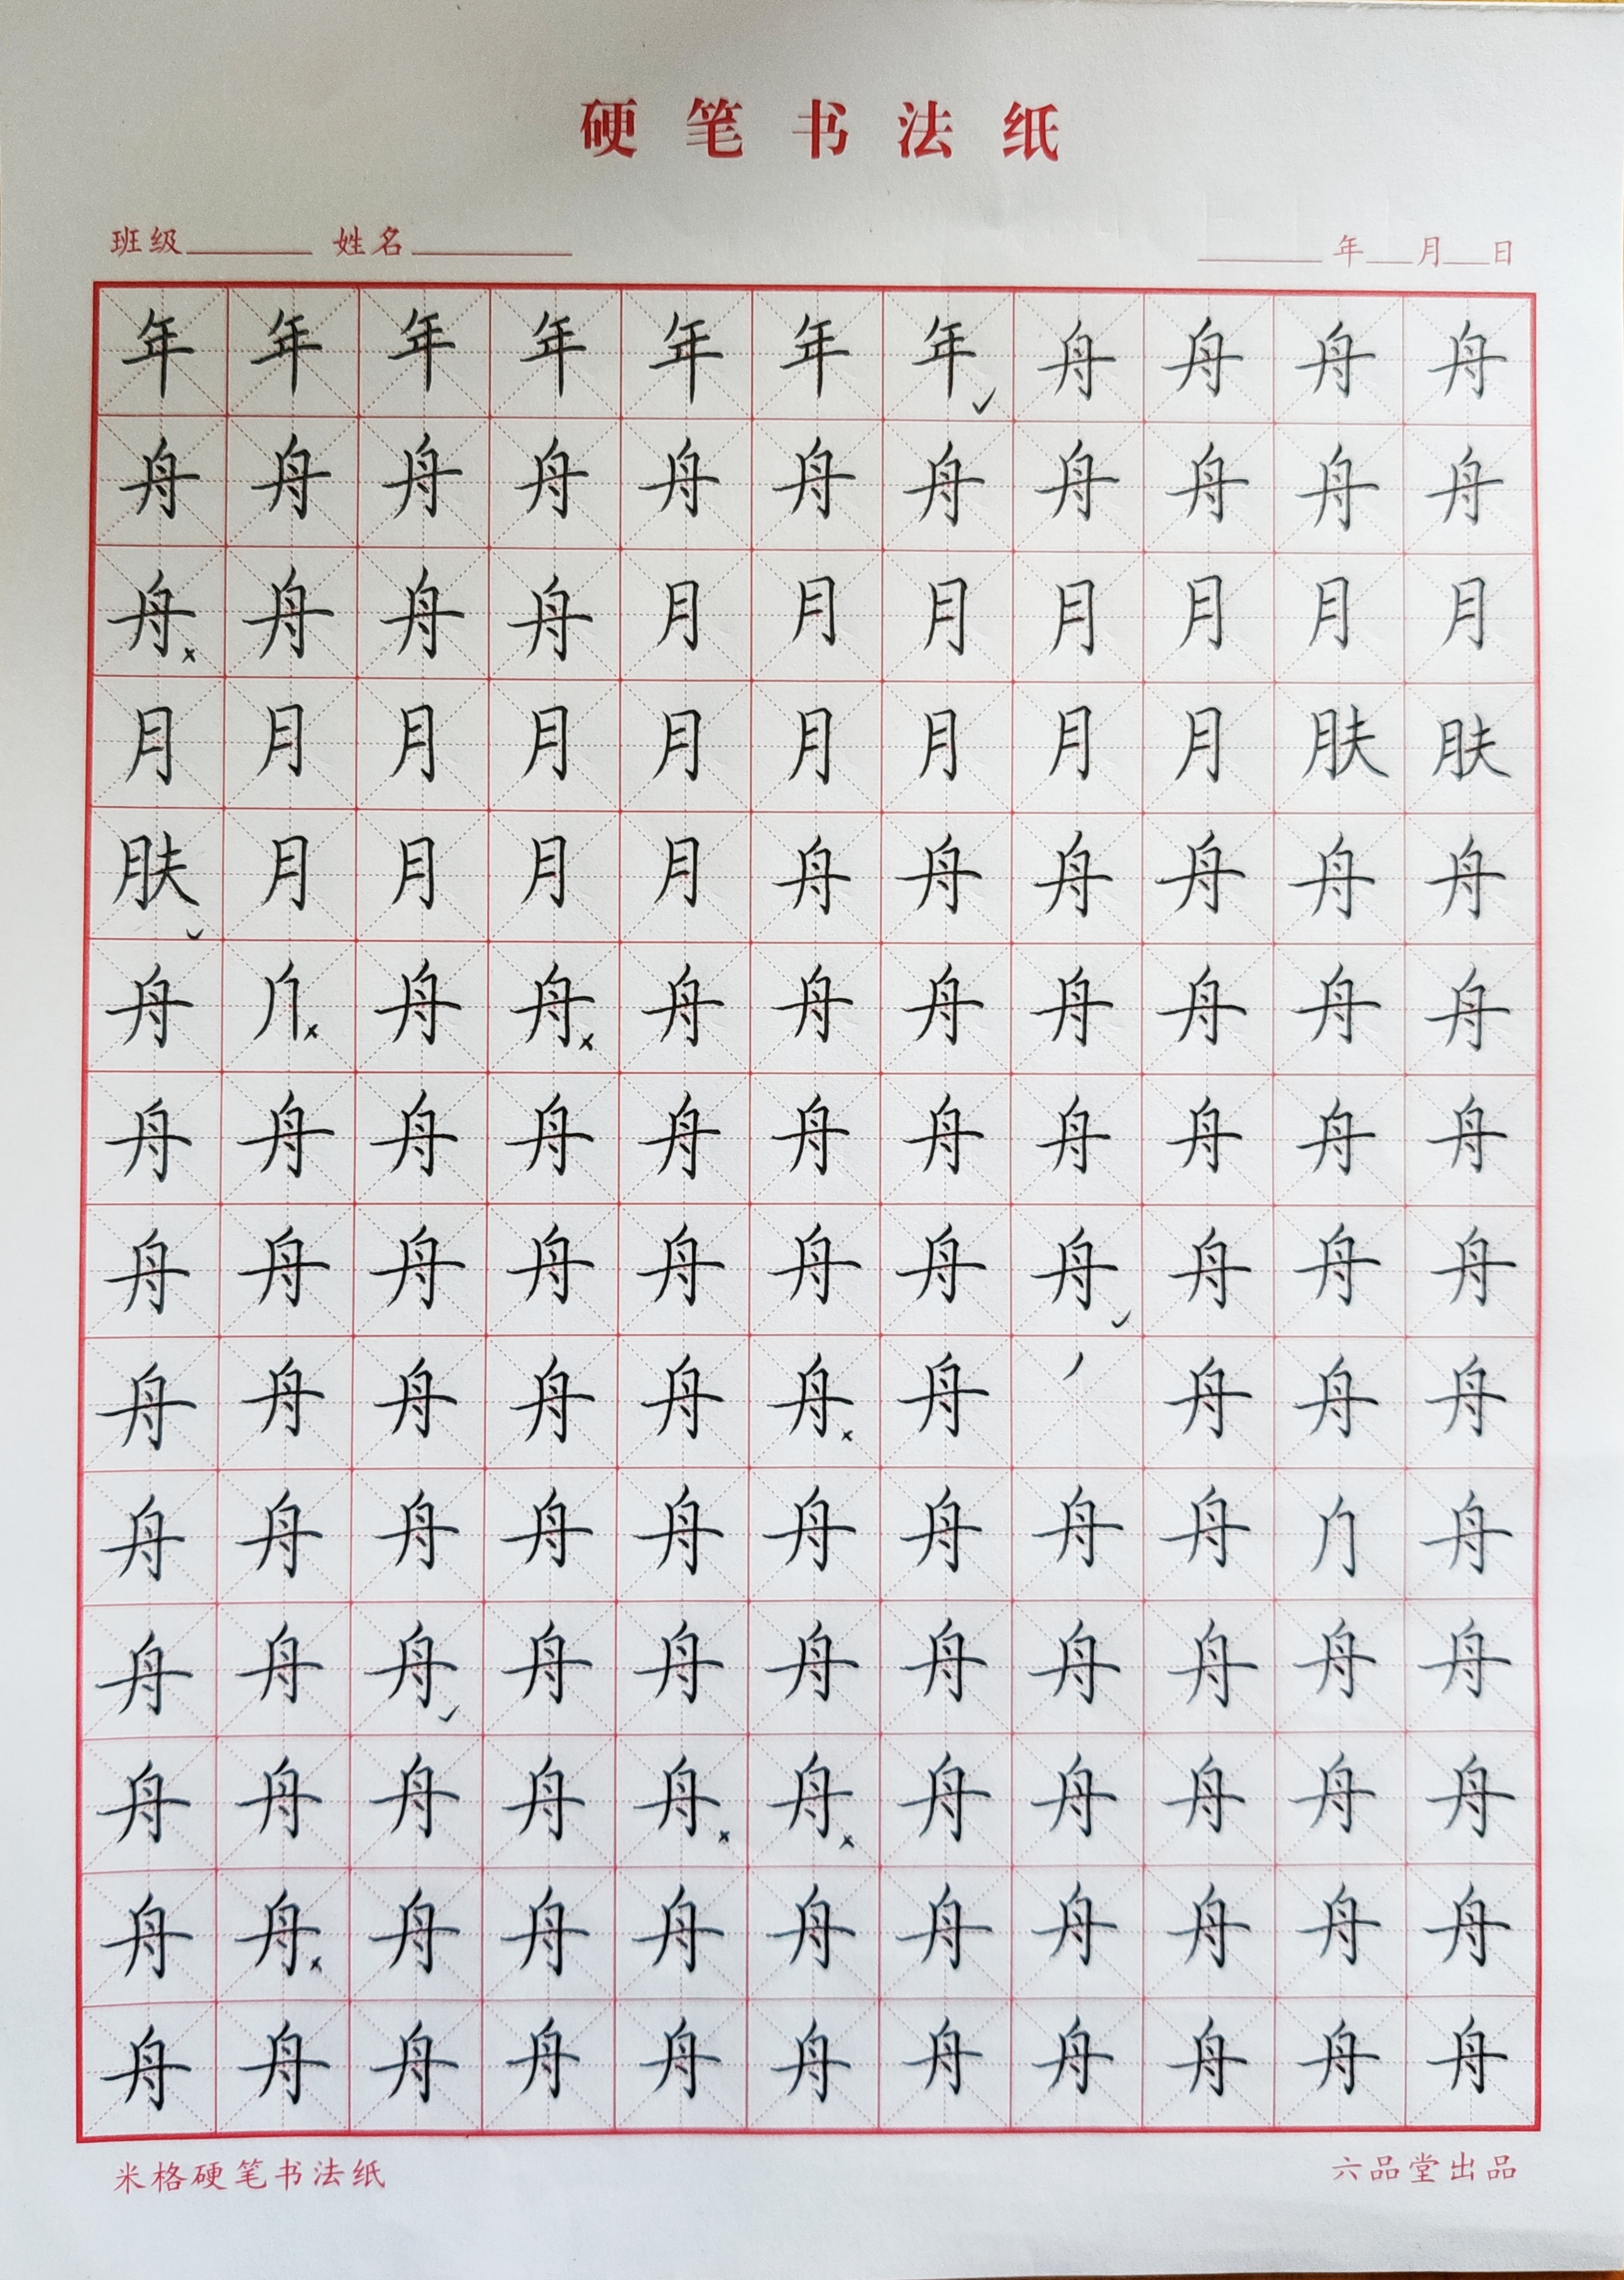 硬笔书法纸
班级 姓名 年 月 日
年年年年年年年舟舟舟舟
舟舟舟舟舟舟舟舟舟舟舟
舟舟舟舟月月月月月月月
月月月月月月月月月肤肤
肤月月月月舟舟舟舟舟舟
舟舟舟舟舟舟舟舟舟舟
舟舟舟舟舟舟舟舟舟舟舟
舟舟舟舟舟舟舟舟舟舟舟
舟舟舟舟舟舟舟舟舟舟
舟舟舟舟舟舟舟舟舟舟
舟舟舟舟舟舟舟舟舟舟舟
舟舟舟舟舟舟舟舟舟舟舟
舟舟舟舟舟舟舟舟舟舟舟
舟舟舟舟舟舟舟舟舟舟舟
米格硬笔书法纸 六品堂出品